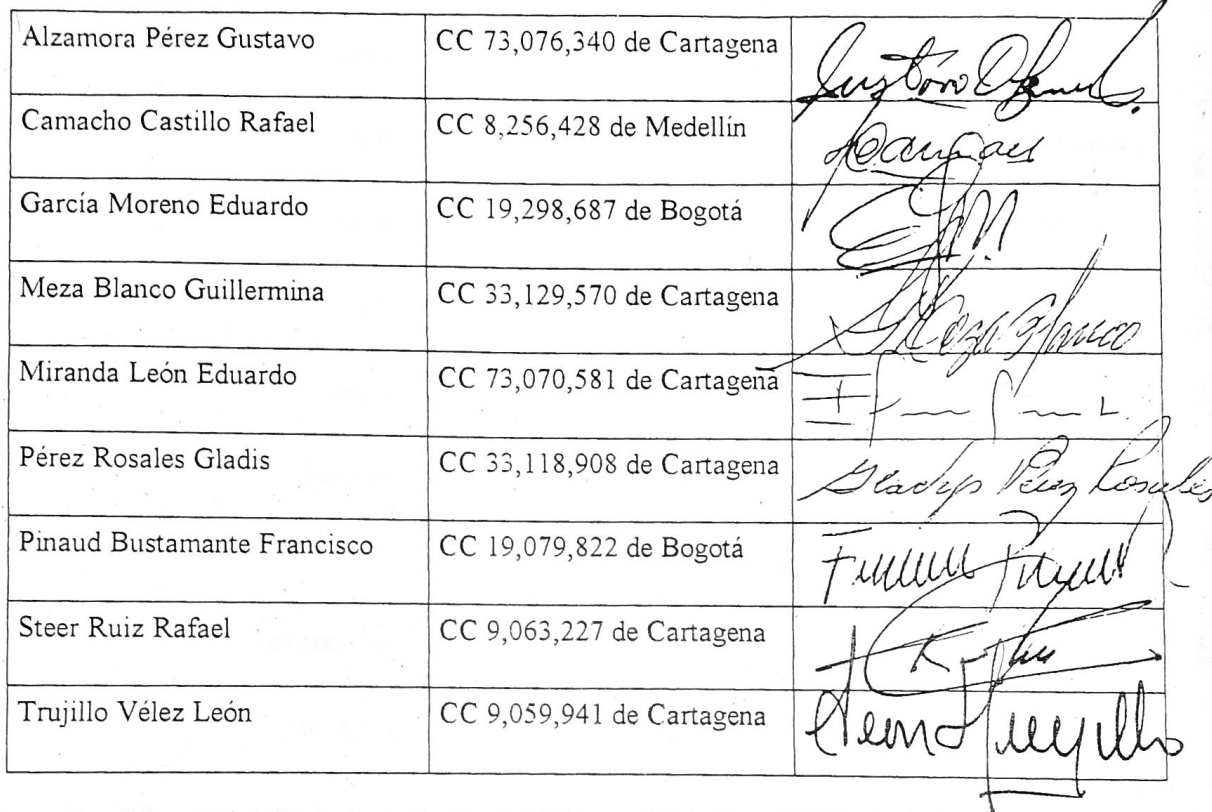 Alzamora Pérez Gustavo CC 73,076,340 de Cartagena
Camacho Castillo Rafael CC 8,256,428 de Medellín
García Moreno Eduardo CC 19,298,687 de Bogotá
Meza Blanco Guillermina CC 33,129,570 de Cartagena
Miranda León Eduardo CC 73,070,581 de Cartagena
Pérez Rosales Gladis CC 33,118,908 de Cartagena Gladys Pérez Rosales
Pinaud Bustamante Francisco CC 19,079,822 de Bogotá
Steer Ruiz Rafael CC 9,063,227 de Cartagena
Trujillo Vélez León CC 9,059,941 de Cartagena León Trujillo